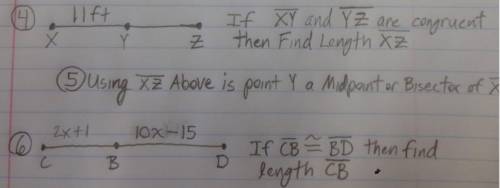 ④ 11ft If X̅Y̅ and Y̅Z̅ are congruent
X Y Z then Find Length X̅Z̅
⑤ Using X̅Z̅ Above is point Y a Midpoint or Bisector of X
⑥ 2x+1 10x-15 If C̅B̅ ≅ B̅D̅ then find
C B D length C̅B̅ .